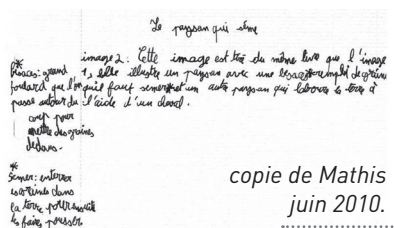 Le paysan qui sème
image 2 : Cette image est tiré du même livre que l'image
1, elle illustre un paysan avec une besace* rempli de grains
qu'il faut semer* et un autre paysan qui laboure la terre à
l'aide d'un cheval.
* Besaces : grand
foulard que l'on
passe autour du
corp pour
mettre des graines
dedans.
**
Semer : enterrer
les graines dans
la terre pour ensuite
les faire pousser
copie de Mathis
juin 2010.